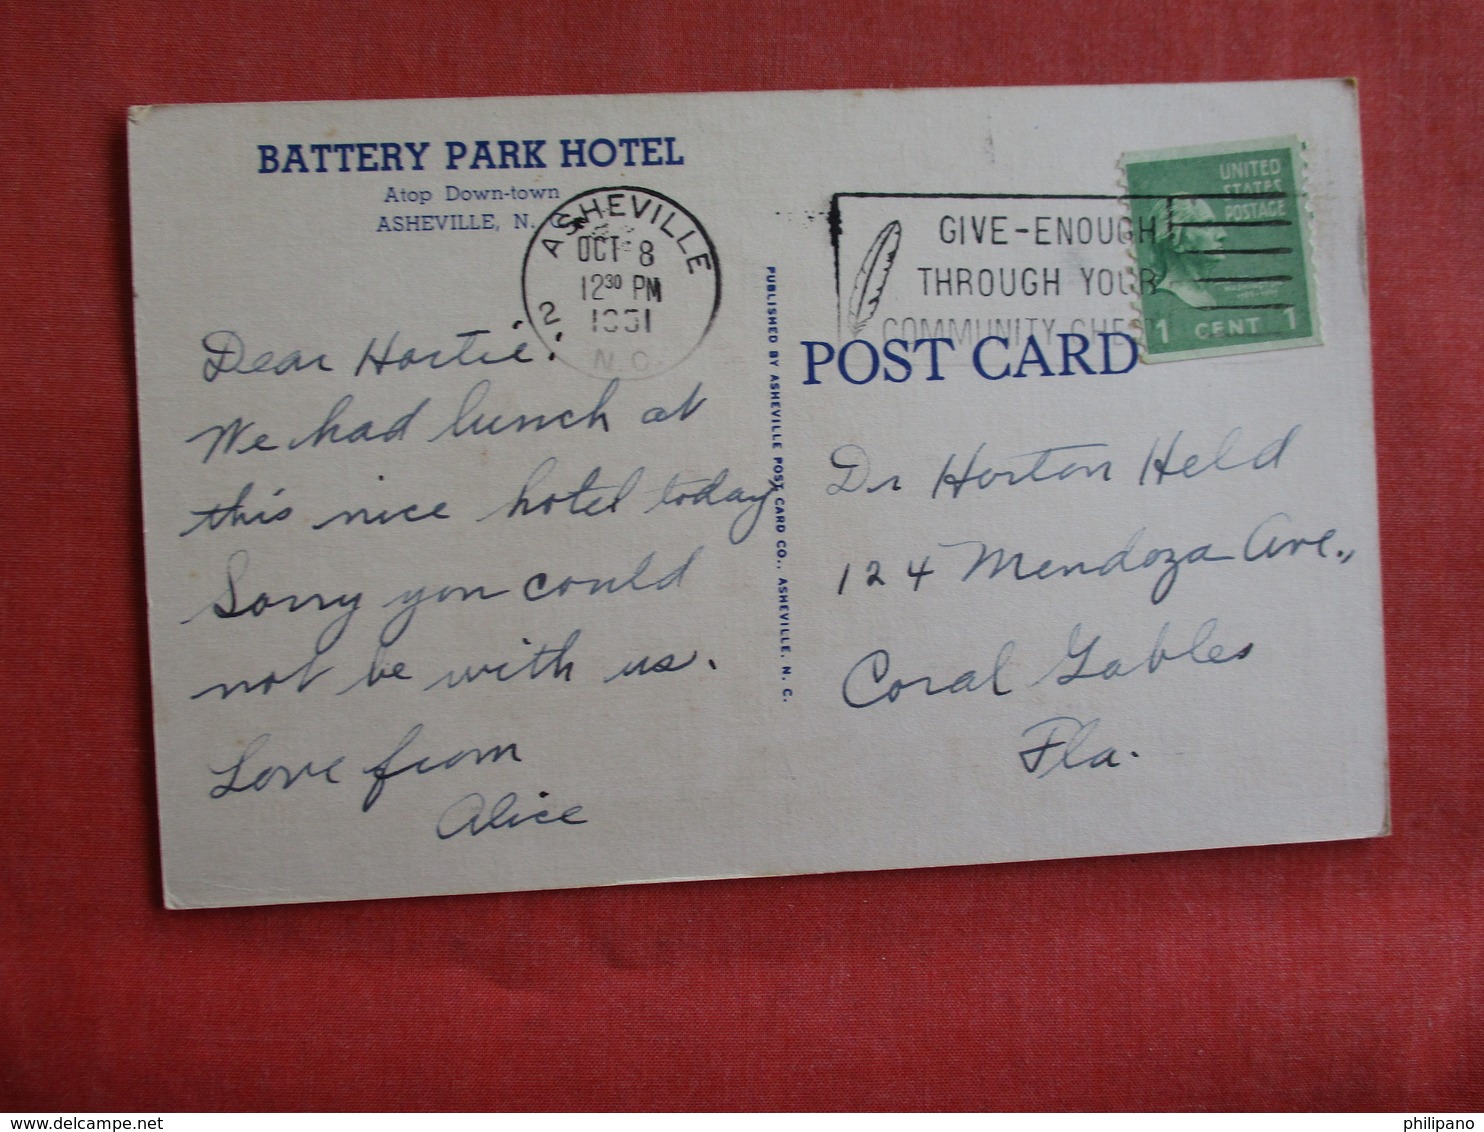 BATTERY PARK HOTEL
Atop Down-town
ASHEVILLE, N.
ASHEVILLE
OCT 8
12 30 PM
1951
2
N.C.
GIVE-ENOUGH
THROUGH YOUR
COMMUNITY CHEST
UNITED
STATES
POSTAGE
1 CENT 1
POST CARD
PUBLISHED BY ASHEVILLE POST CARD CO., ASHEVILLE, N. C.
Dear Hortie:
We had lunch at
this nice hotel today
Sorry you could
not be with us.
Love from
Alice
Dr Horton Held
124 Mendoza Ave.,
Coral Gables
Fla.
philipano